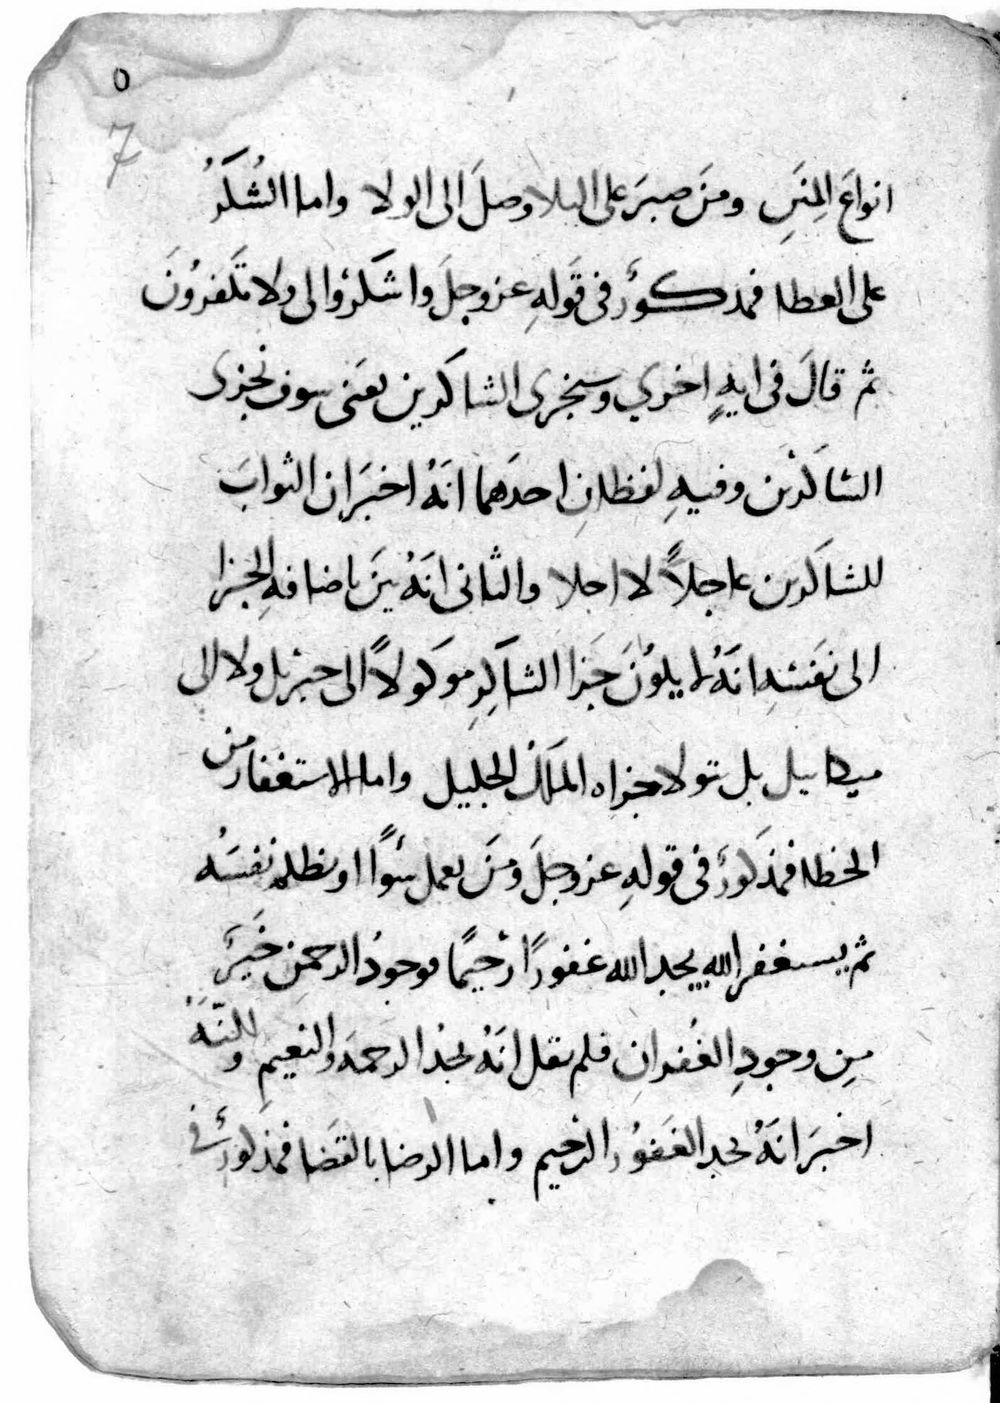 ٥
7
انواعَ المِنَنِ ومَنَ صبرَ على البلا وصلَ الى الولا واما الشُكرُ
على العطا فمذكوُرٌ فى قَولهِ عز وجلَ واشكرُوا لى ولا تكفرُونَ
ثم قالَ فى ايهٍ اخري وسنجزى الشاكرين يعَنى سوف نجزى
الشاكرْين وفيهِ لفظانِ احدَهما انهُ اخبَر ان الثوابَ
للشاكرين عاجلاً لا اجلا والثانى انهُ بيَن باضافهِ الجزا
الى نفَسْهِ انهُ لا يكوُنَ جَزا الشاكِرِ موكولاً الى جبرْيل ولا الى
ميكاييل بل تولا جزاه الملكُ الجليل واما الاستغفار من
الخطا فمذكورٌ فى قولهِ عز وجلَ ومَنَ يعمل سُوًا او يظلم نفسَهُ
ثم يستغفر الله يجد الله غفورًا رَحيمًا فوجودُ الرحمنِ خَيرٌ
مِن وجودِ الغُفرانِ فلم يقل انهُ يجدُ الرحمهَ والنعيمِ ولكنّهُ
اخبرَ انهُ يجد الغَفوُر الرْحيم واما الرضا بالقضَا فمذكورٌ فى